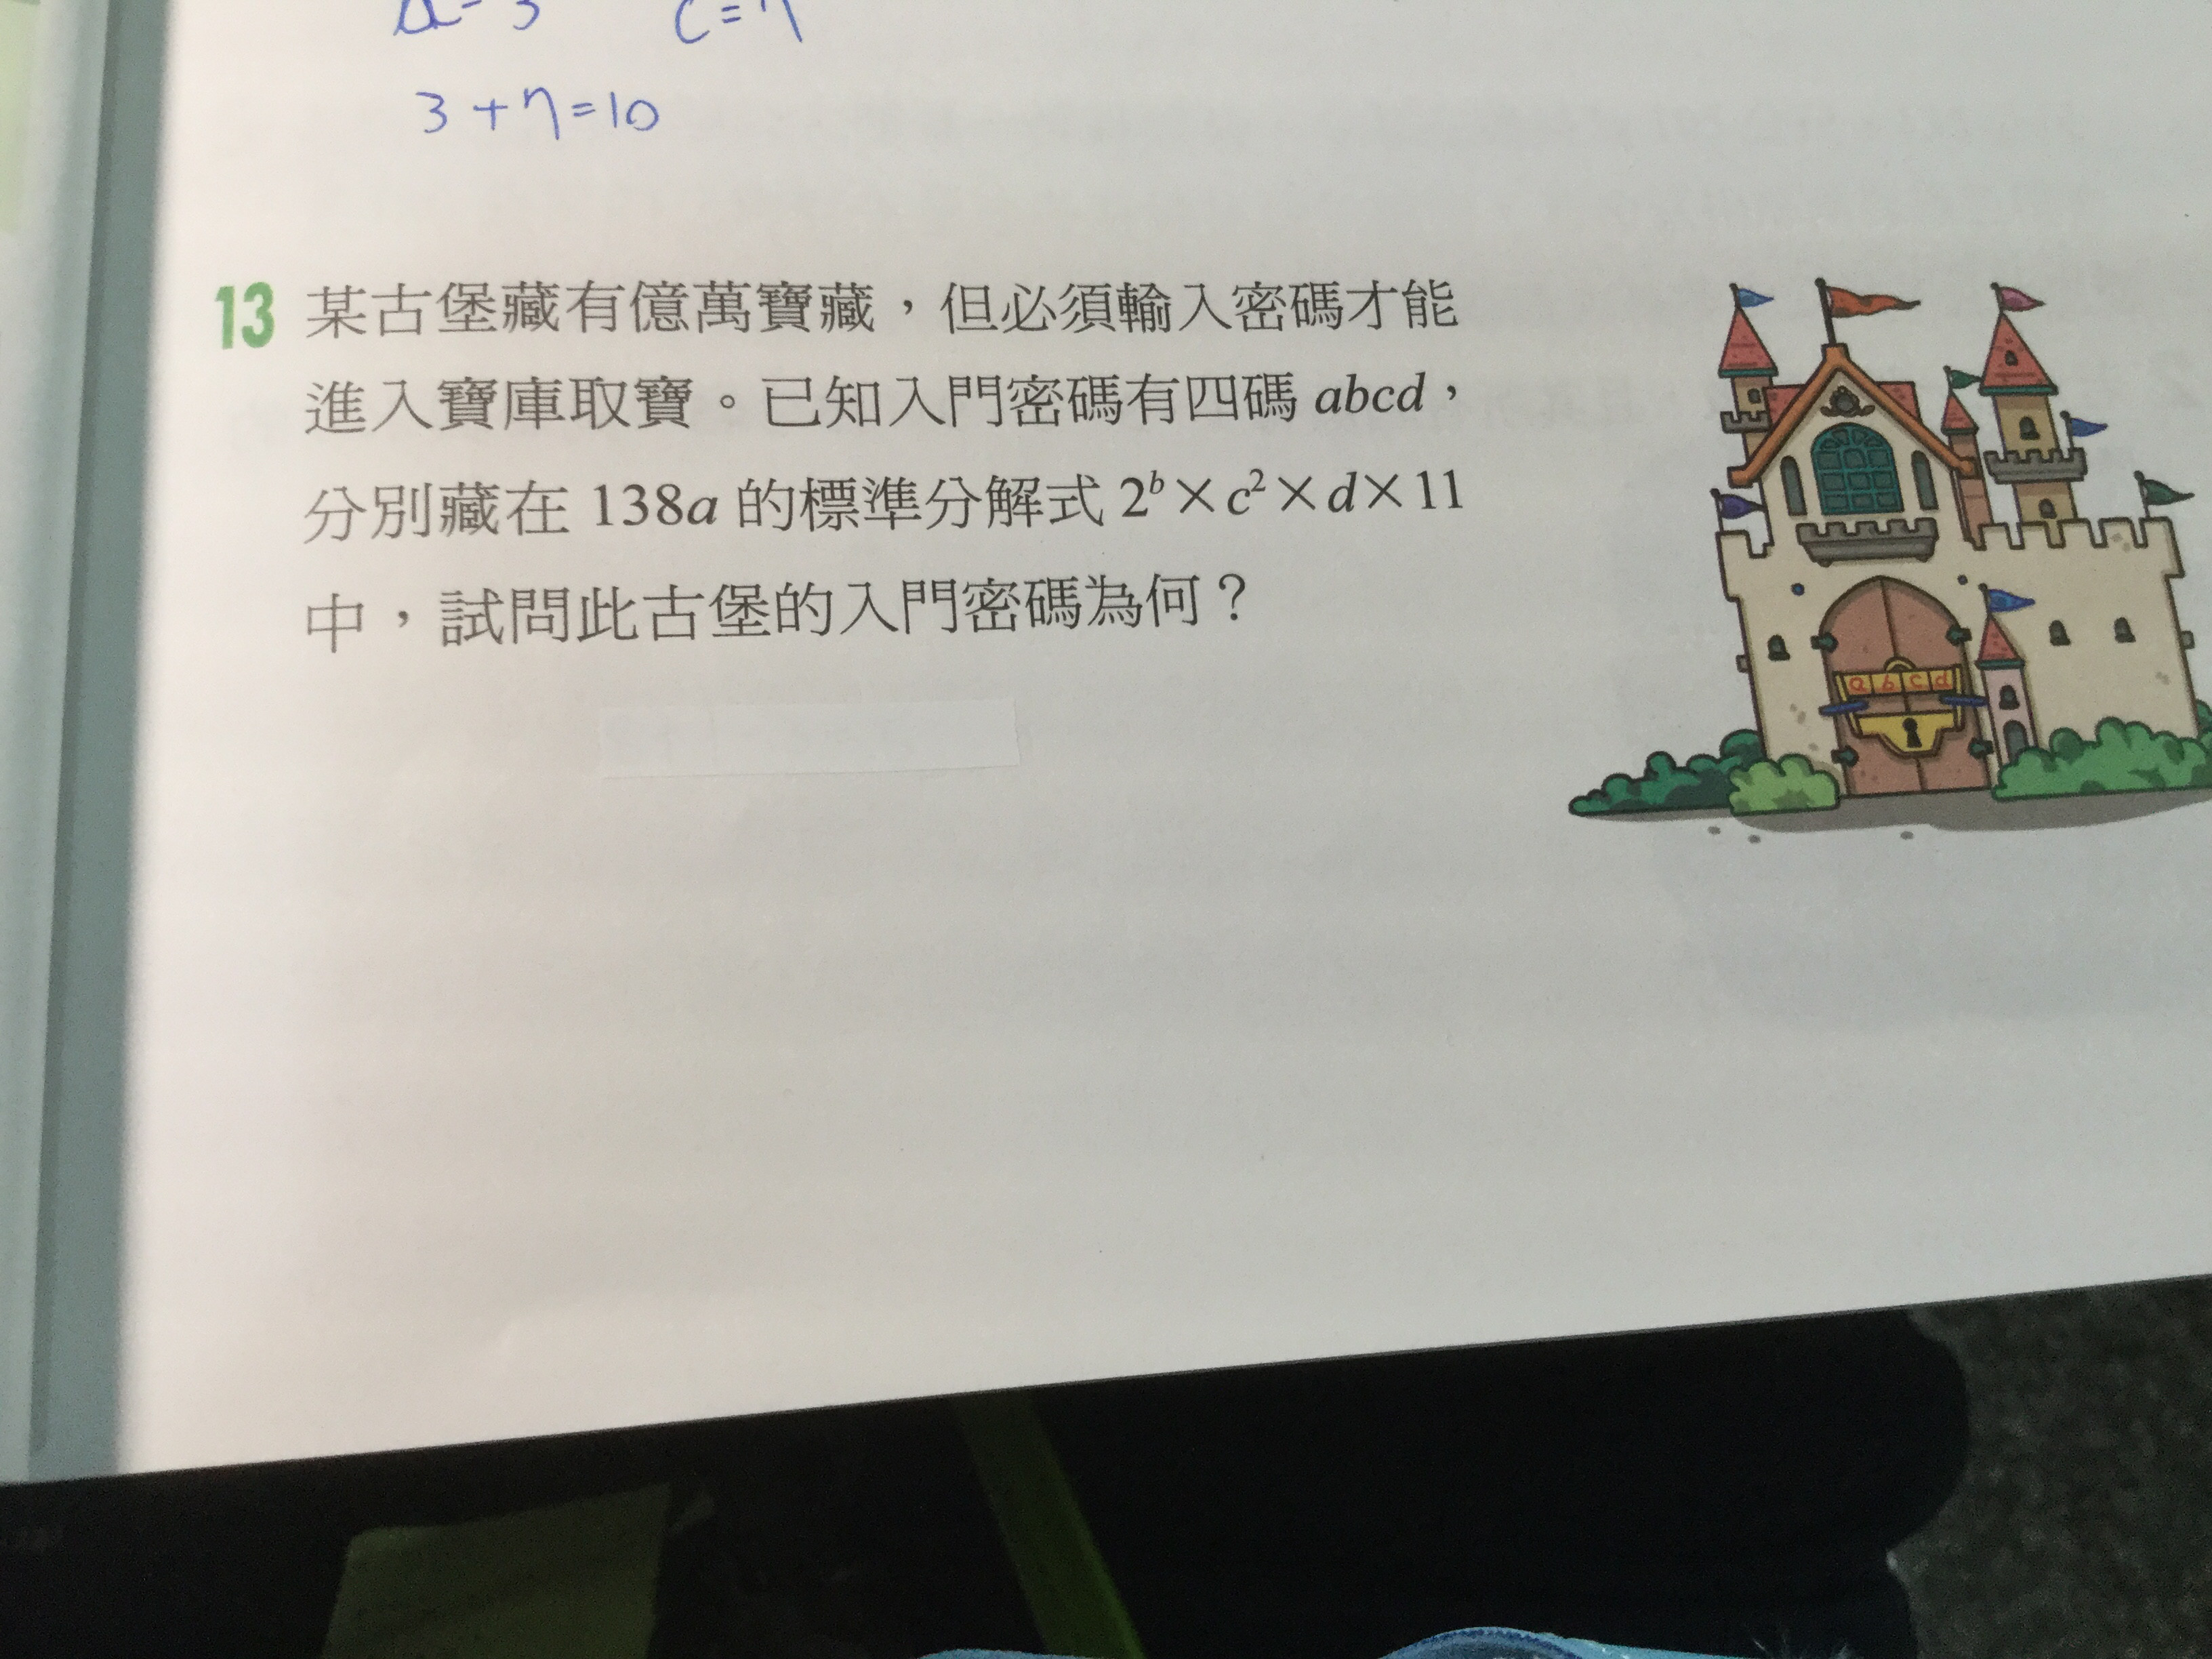 a=3 c=7
3+7=10
13 某古堡藏有億萬寶藏，但必須輸入密碼才能
進入寶庫取寶。已知入門密碼有四碼 abcd，
分別藏在 138a 的標準分解式 2ᵇ×c²×d×11
中，試問此古堡的入門密碼為何？
a b c d